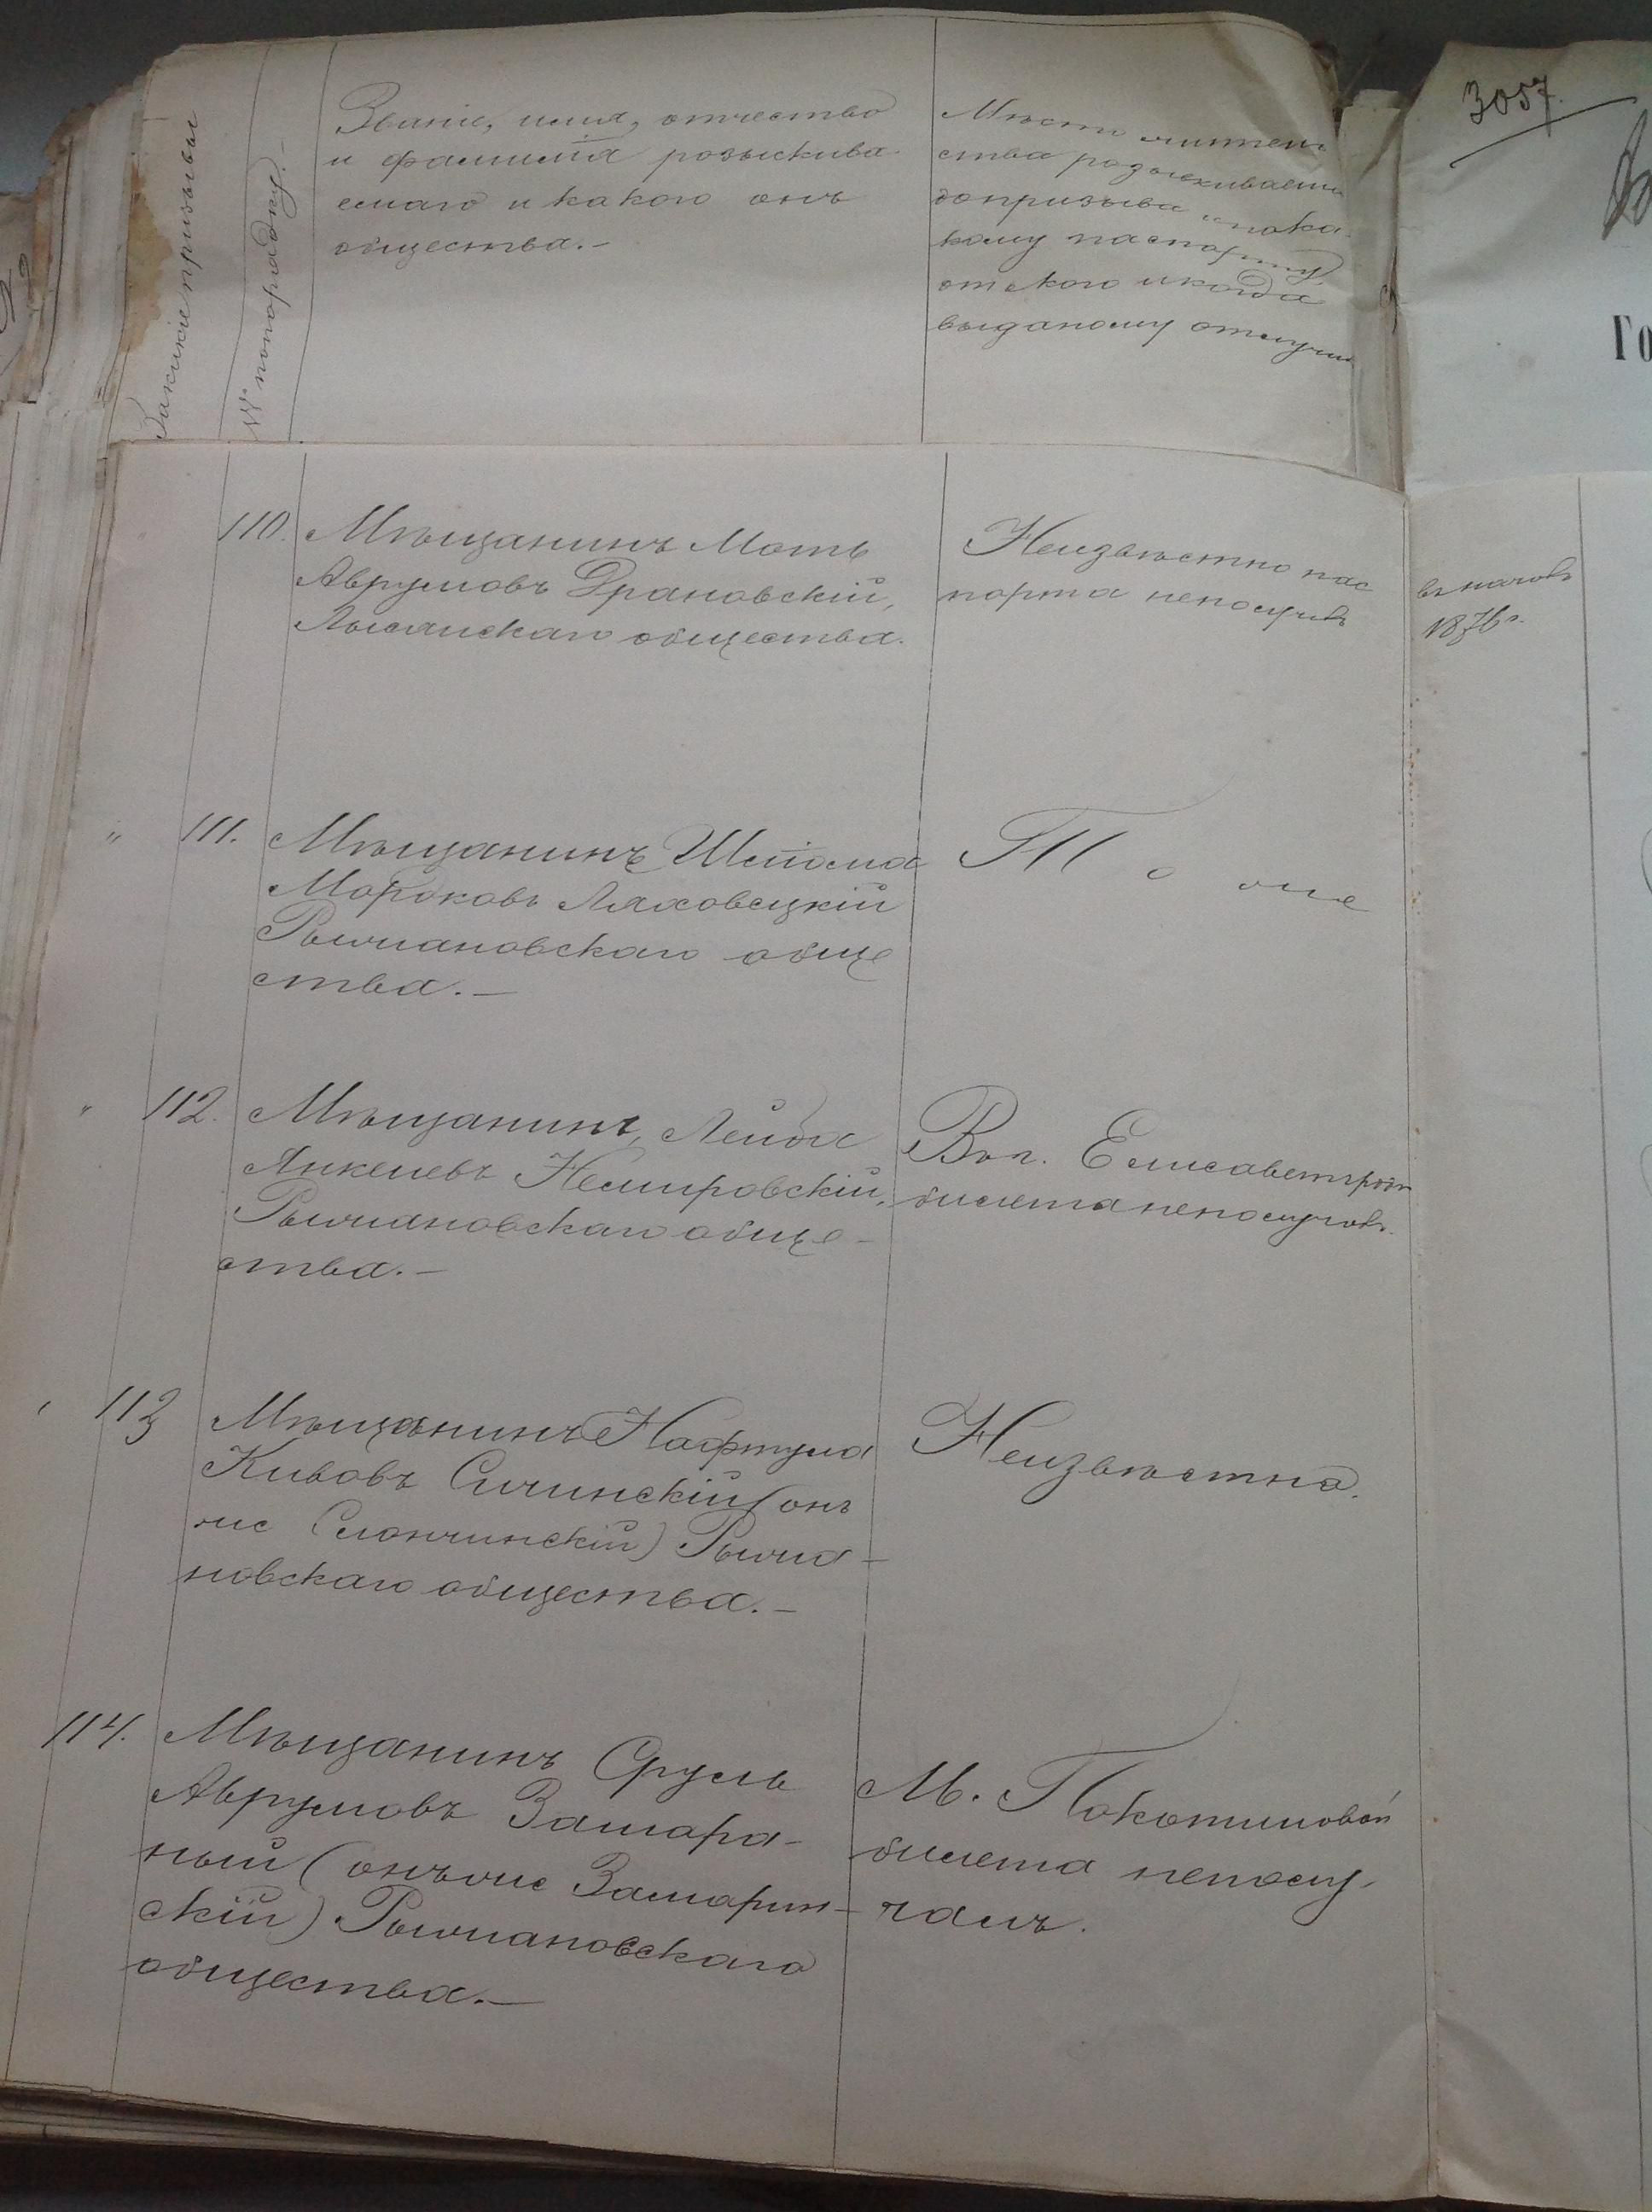 За какіе призывы
№ по порядку.
Званіе, имя, отчество
и фамилія розыскива
емаго и какого онъ
общества.-
Мѣсто житель
ства розыскиваемы
до призыва и по ка
кому паспорту,
отъ кого и когда
выданому отлучи
3057.
Го
110. Мѣщанинъ Моть
Аврумовъ Драновскій,
Лысянскаго общества.
Неизвѣстно пас
порта неполучалъ
въ началѣ
1876 г.
" 111. Мѣщанинъ Шліома
Мордковъ Ляховецкій
Рыжановскаго обще
ства.-
То же
" 112. Мѣщанинъ, Лейба
Янкелевъ Немировскій,
Рыжановскаго обще-
ства.-
Въ г. Елисаветградѣ
билета неполучалъ.
" 113 Мѣщанинъ Нафтула
Кивовъ Сичинскій (онъ
же Сланчинскій) Рыжа-
новскаго общества.-
Неизвѣстно.
114. Мѣщанинъ Сруль
Аврумовъ Замара-
ный (онъ же Замарин-
скій) Рыжановскаго
общества.-
М. Покотиловой
билета неполу-
чалъ.